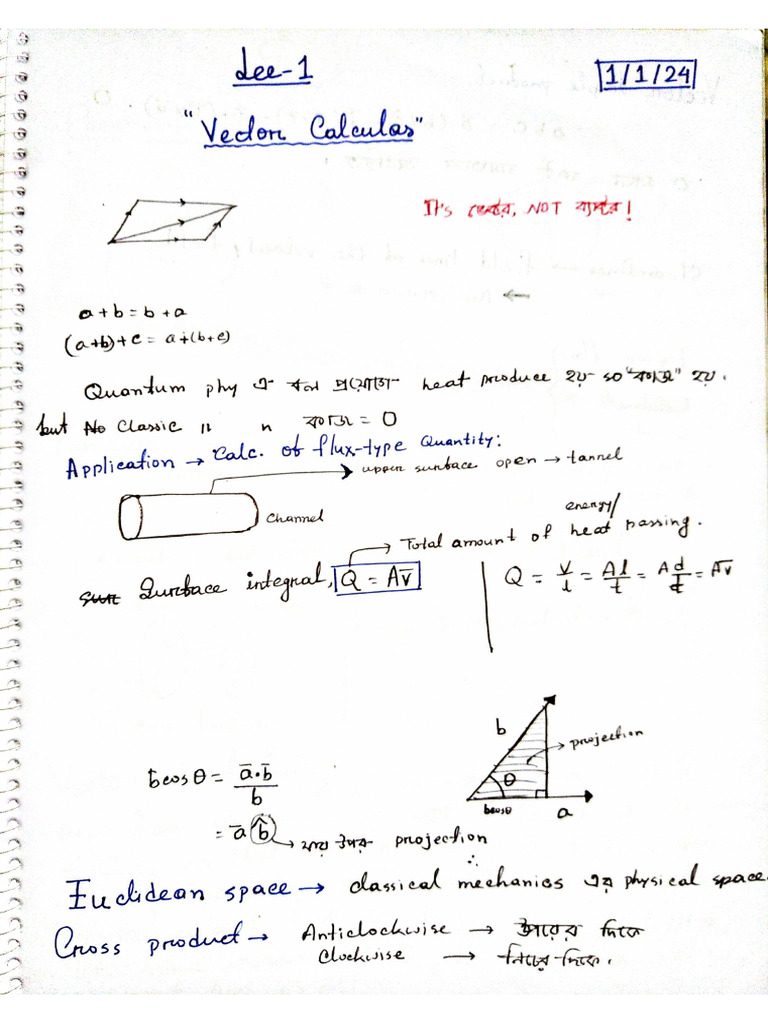 Lec-1
1/1/24
"Vector Calculas"
It's ভেক্টর, NOT ব্যাক্টর!
a + b = b + a
(a+b)+c = a+(b+c)
Quantum phy এ বল প্রয়োগে heat produce হয় so "কাজ" হয়.
but No Classic 11 n কাজ = 0
Application → Calc. of flux-type Quantity:
upper surface open → tannel
Channel
energy/
Total amount of heat passing.
Surface integral, Q = Av̅
Q = V/t = Al/t = Ad/t = Av̅
b
projection
θ
bcosθ
a
bcosθ = a̅·b̅/b
= a̅ b̂ → যার উপর projection
Euclidean space → classical mechanics এর physical space.
Cross product → Anticlockwise → উপরের দিকে
Clockwise → নিচের দিকে.